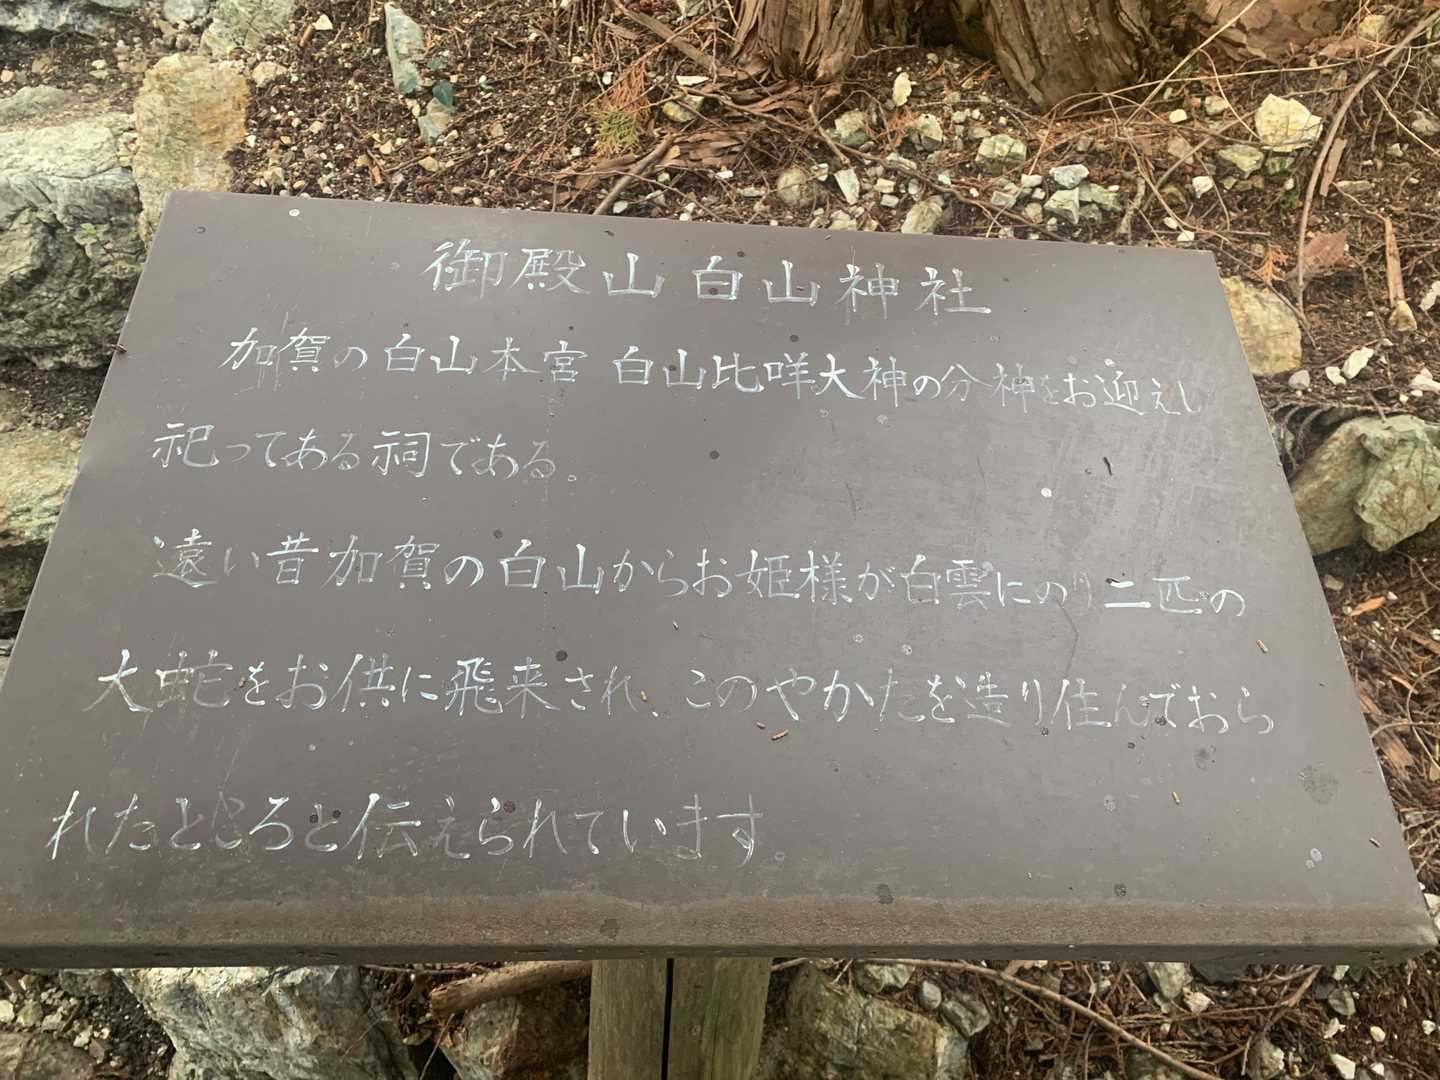 御殿山白山神社
加賀の白山本宮 白山比咩大神の分神をお迎えし
祀ってある祠である。
遠い昔加賀の白山からお姫様が白雲にのり二匹の
大蛇をお供に飛来され、このやかたを造り住んでおら
れたところと伝えられています。